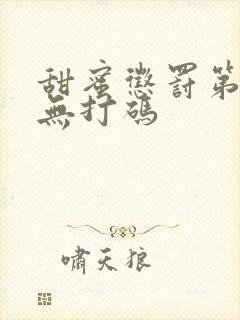 甜蜜懲罰第
無打碼
啸天狼